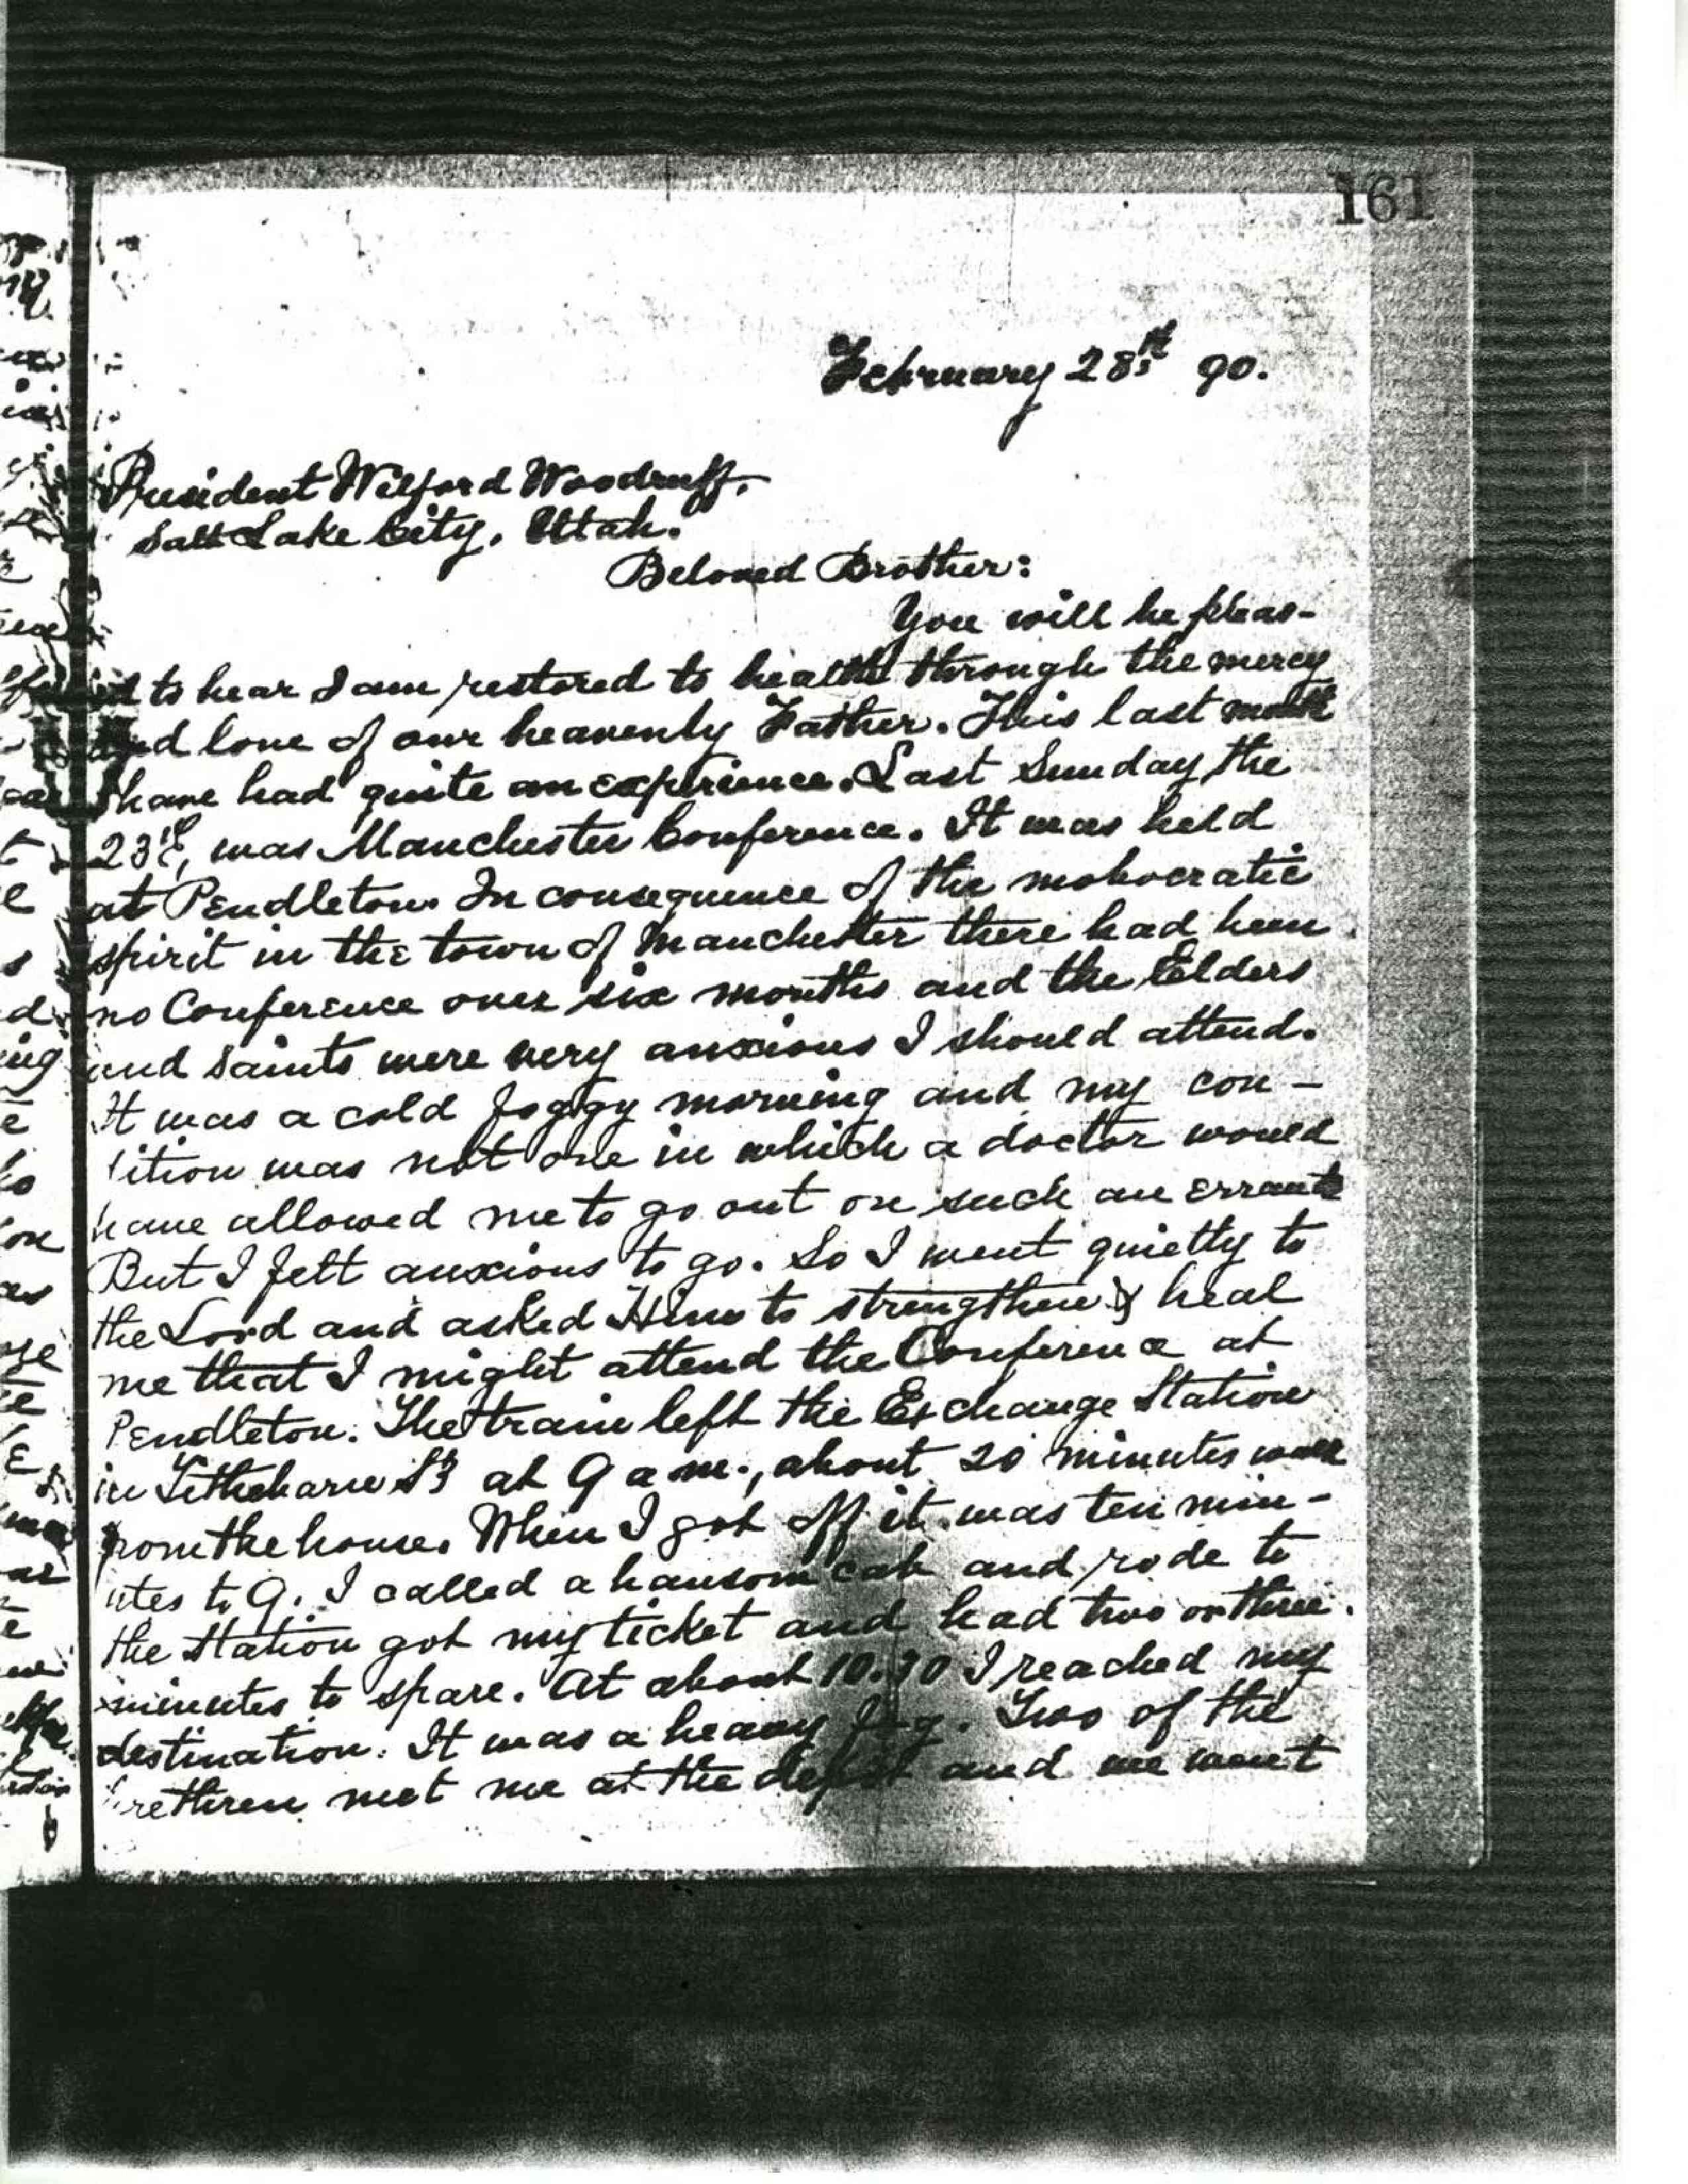 161
February 28th 90.
President Wilford Woodruff,
Salt Lake City, Utah.
Beloved Brother:
You will be pleas-
ed to hear I am restored to health through the mercy
and love of our heavenly Father. This last month
I have had quite an experience. Last Sunday the
23rd, was Manchester Conference. It was held
at Pendleton. In consequence of the mobocratic
spirit in the town of Manchester there had been
no Conference over six months and the Elders
and Saints were very anxious I should attend.
It was a cold foggy morning and my con-
dition was not one in which a doctor would
have allowed me to go out on such an errand
But I felt anxious to go. So I went quietly to
the Lord and asked Him to strengthen & heal
me that I might attend the Conference at
Pendleton. The train left the Exchange Station
in Tithebarn St at 9 a m., about 20 minutes walk
from the house. When I got off it was ten min-
utes to 9. I called a hansom cab and rode to
the station got my ticket and had two or three
minutes to spare. At about 10.30 I reached my
destination. It was a heavy fog. Two of the
brethren met me at the depot and we went